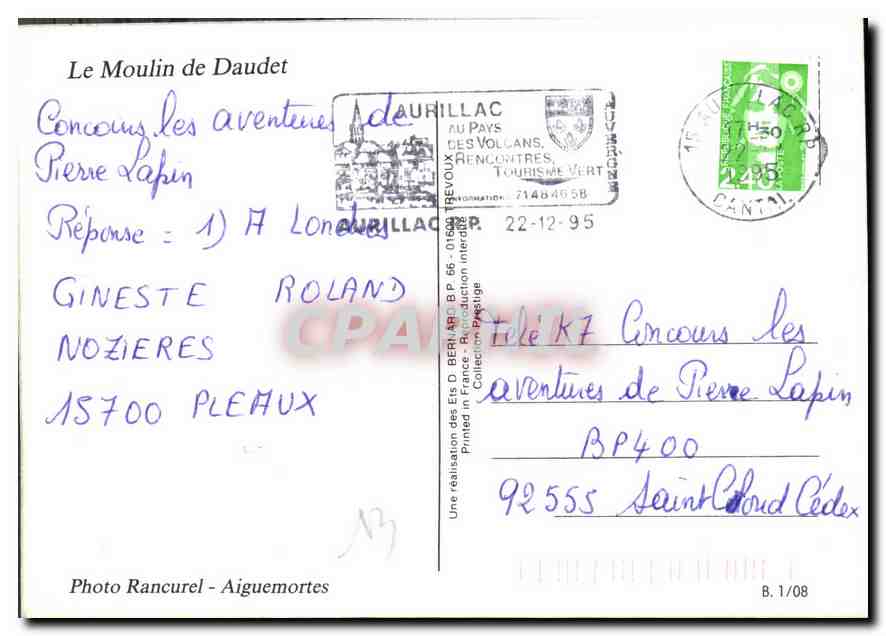 Le Moulin de Daudet
Concours les aventures de
Pierre Lapin
Réponse = 1) A Londres
GINESTE ROLAND
NOZIERES
15700 PLEAUX
Photo Rancurel - Aiguemortes
AURILLAC
AU PAYS
DES VOLCANS,
RENCONTRES,
TOURISME VERT
INFORMATIONS 71484658
AUVERGNE
AURILLAC R.P. 22-12-95
Une réalisation des Ets D. BERNARD B.P. 66 - 01600 TREVOUX
Printed in France - Reproduction interdite
Collection Prestige
15 AURILLAC RP
17H30
1995
CANTAL
REPUBLIQUE FRANÇAISE
2,40
Télé K7 Concours les
aventures de Pierre Lapin
BP400
92555 Saint Cloud Cédex
B. 1/08
CPARAMA